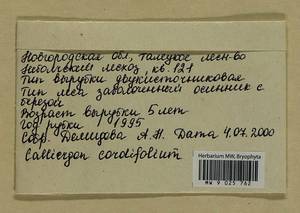 Новгородская обл, Талецкое лесн-во
лесхоз, кв. 121
Тип вырубки двукисточниковая
Тип леса заболоченный осинник с
березой
Возраст вырубки 5 лет
Год рубки 1995
Собр. Демидова А.Н. Дата 4.07.2000
Calliergon cordifolium
Herbarium MW, Bryophyta
MW 9 025 762